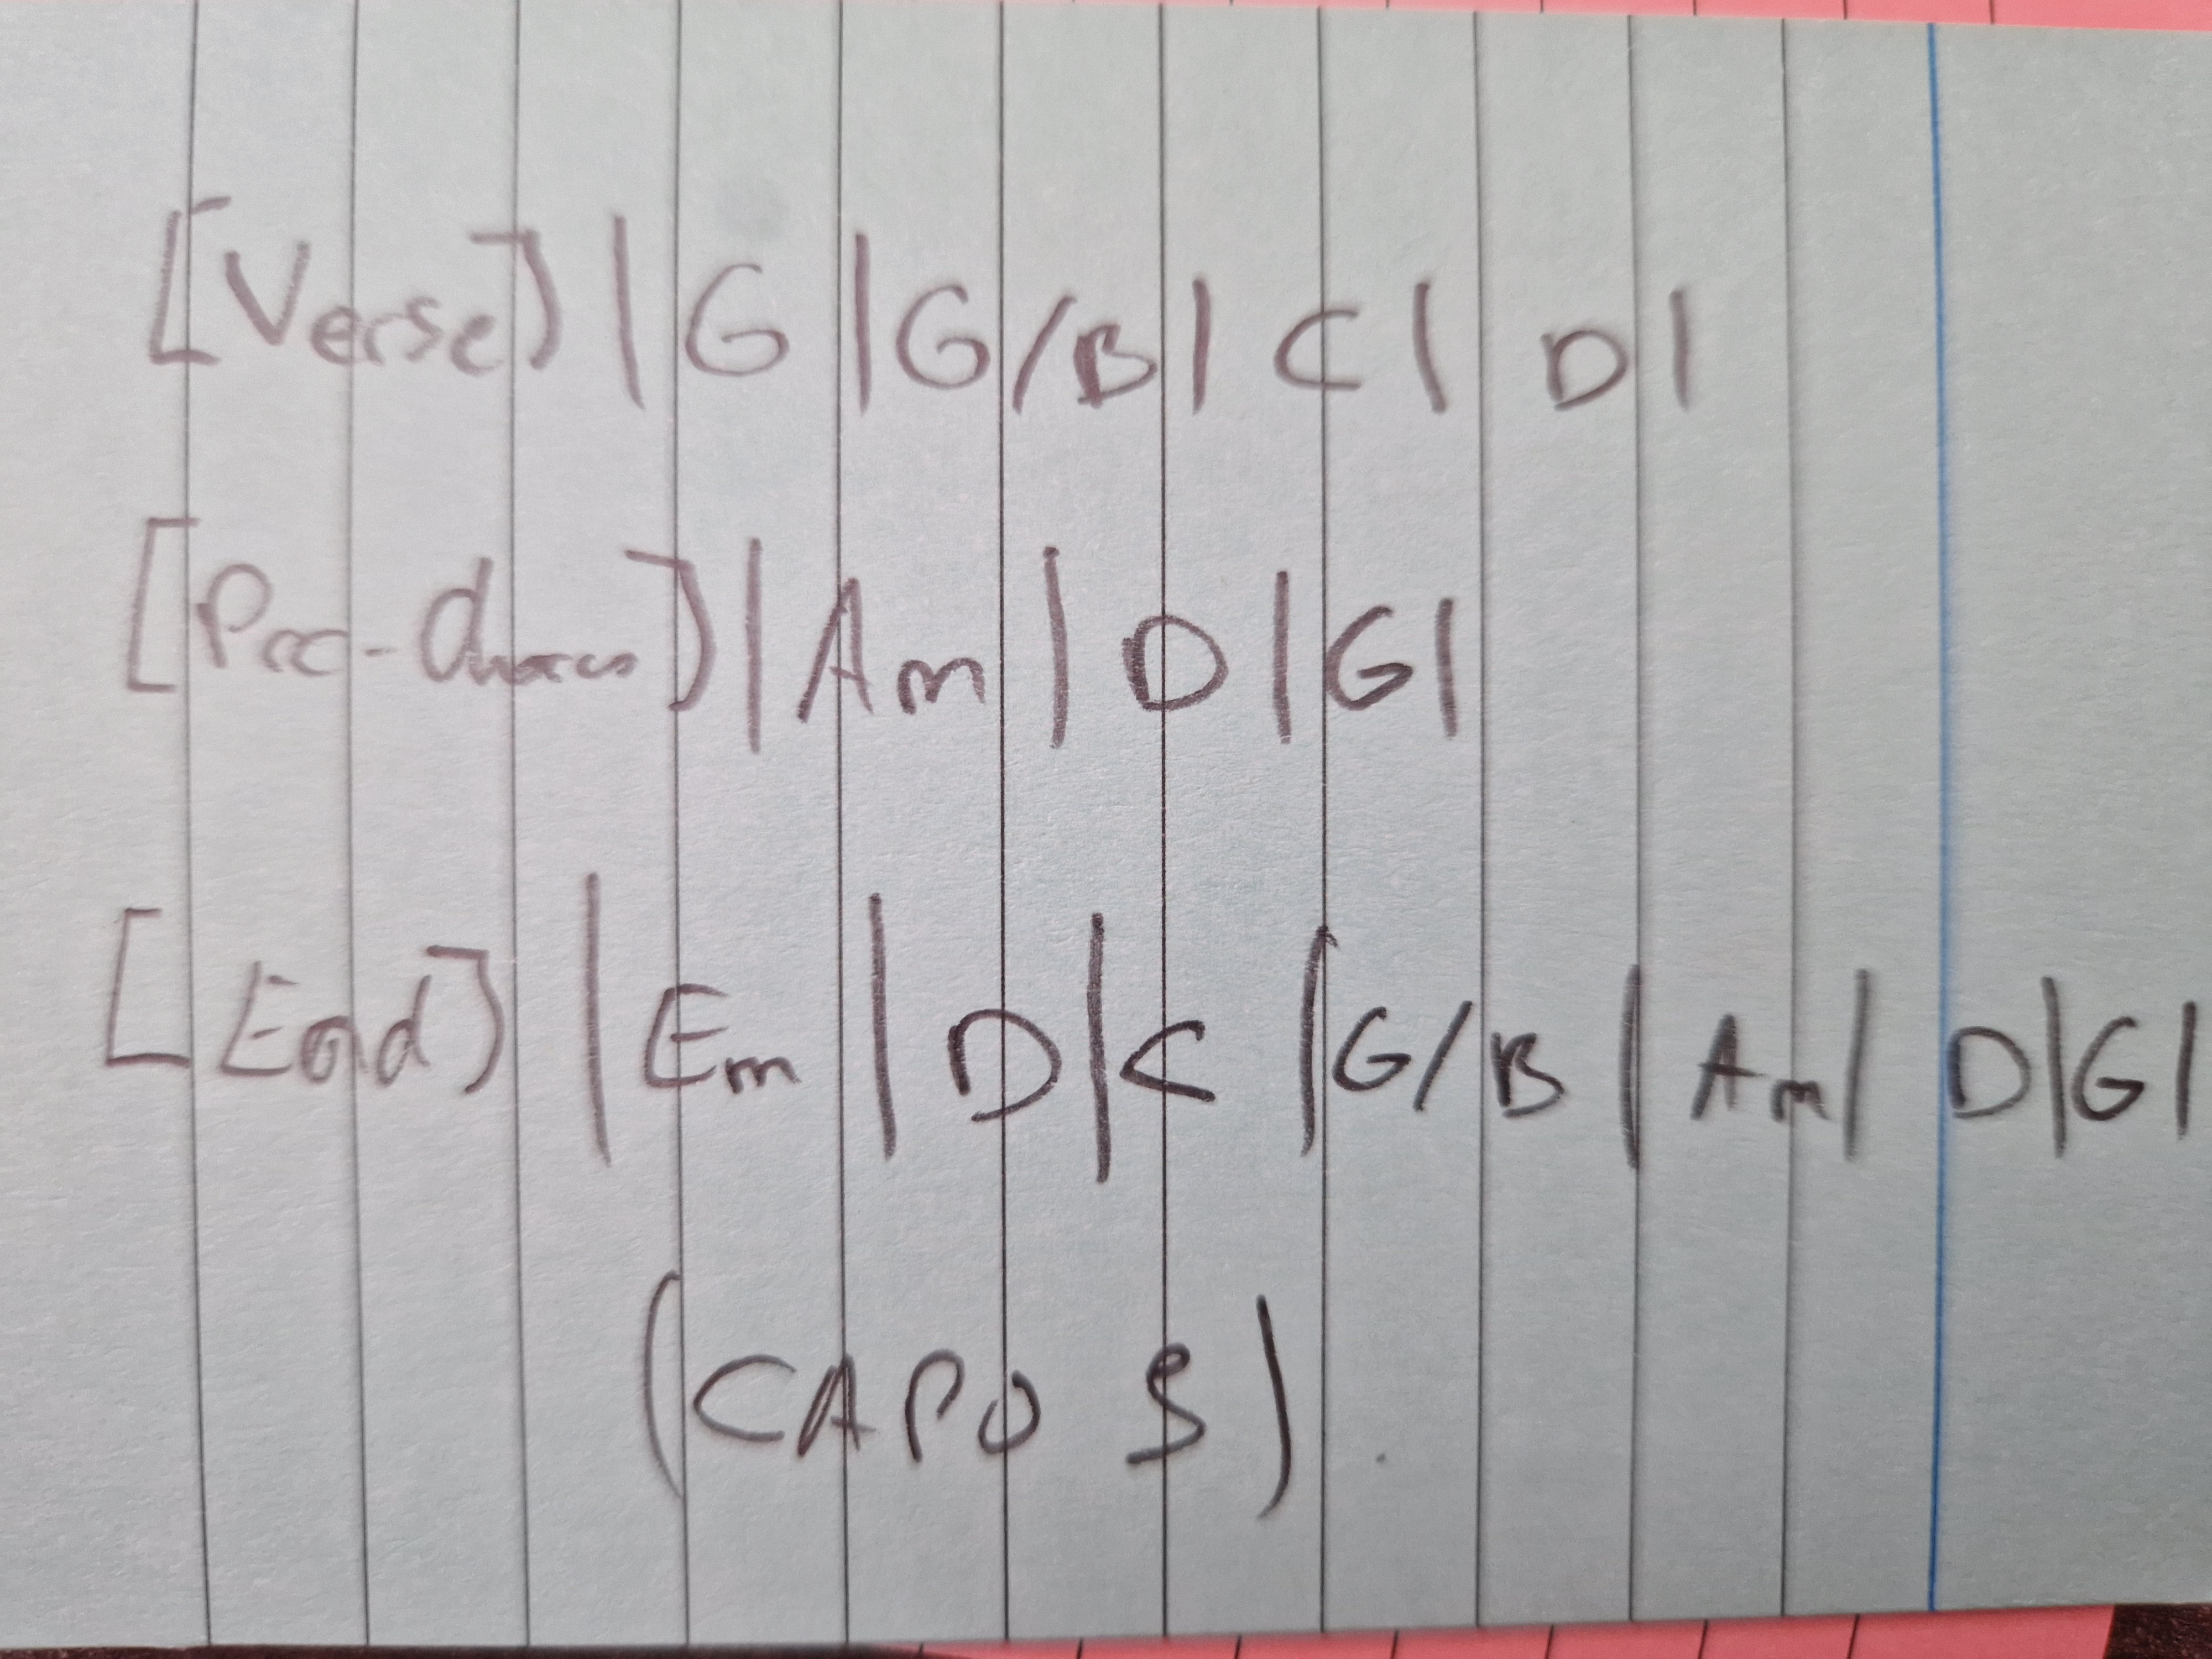 [Verse] | G | G/B | C | D |
[Pre-chorus] | Am | D | G |
[End] | Em | D | C | G/B | Am | D | G |
(CAPO 5).